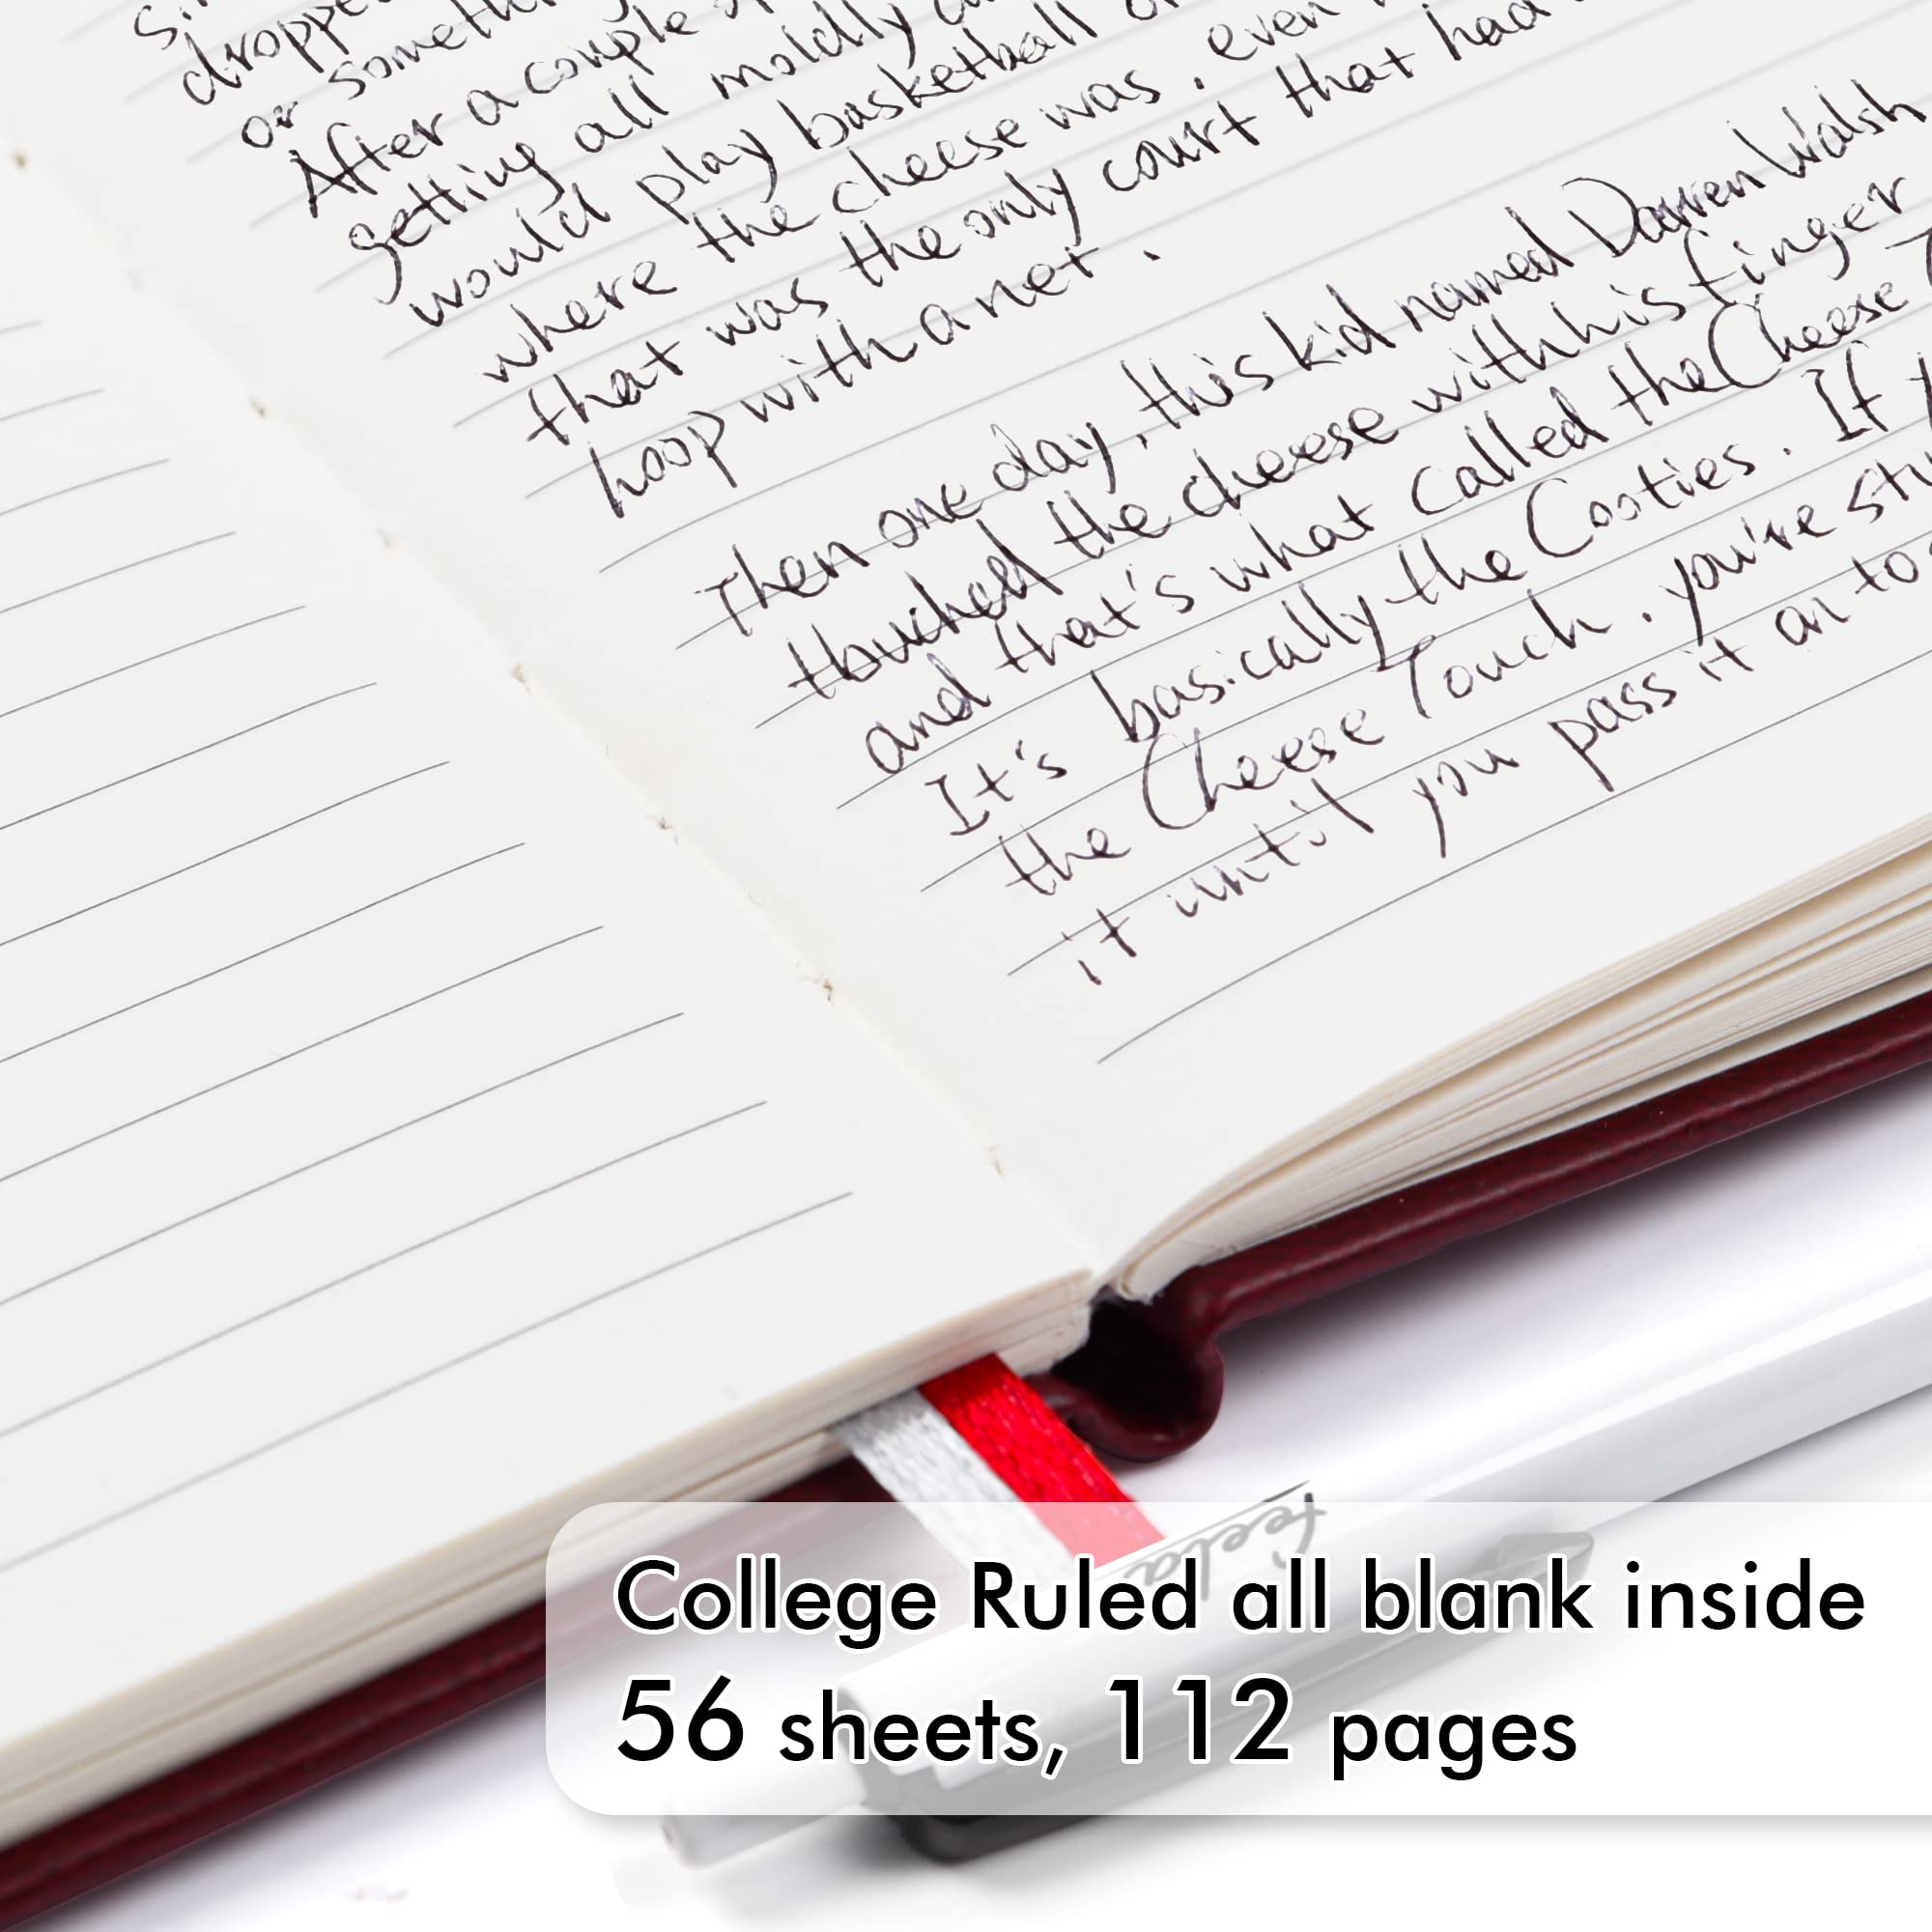 droppe
or someth
After a couple
getting all moldly a
would play basketball o
where the cheese was, even
that was the only court that had
hoop with a net.
Then one day, this kid named Darren Walsh
thouched the cheese with his finger
and that's what called the Cheese T
It's basically the Cooties. If
the Cheese Touch, you're stu
it until you pass it on to
feela
College Ruled all blank inside
56 sheets, 112 pages